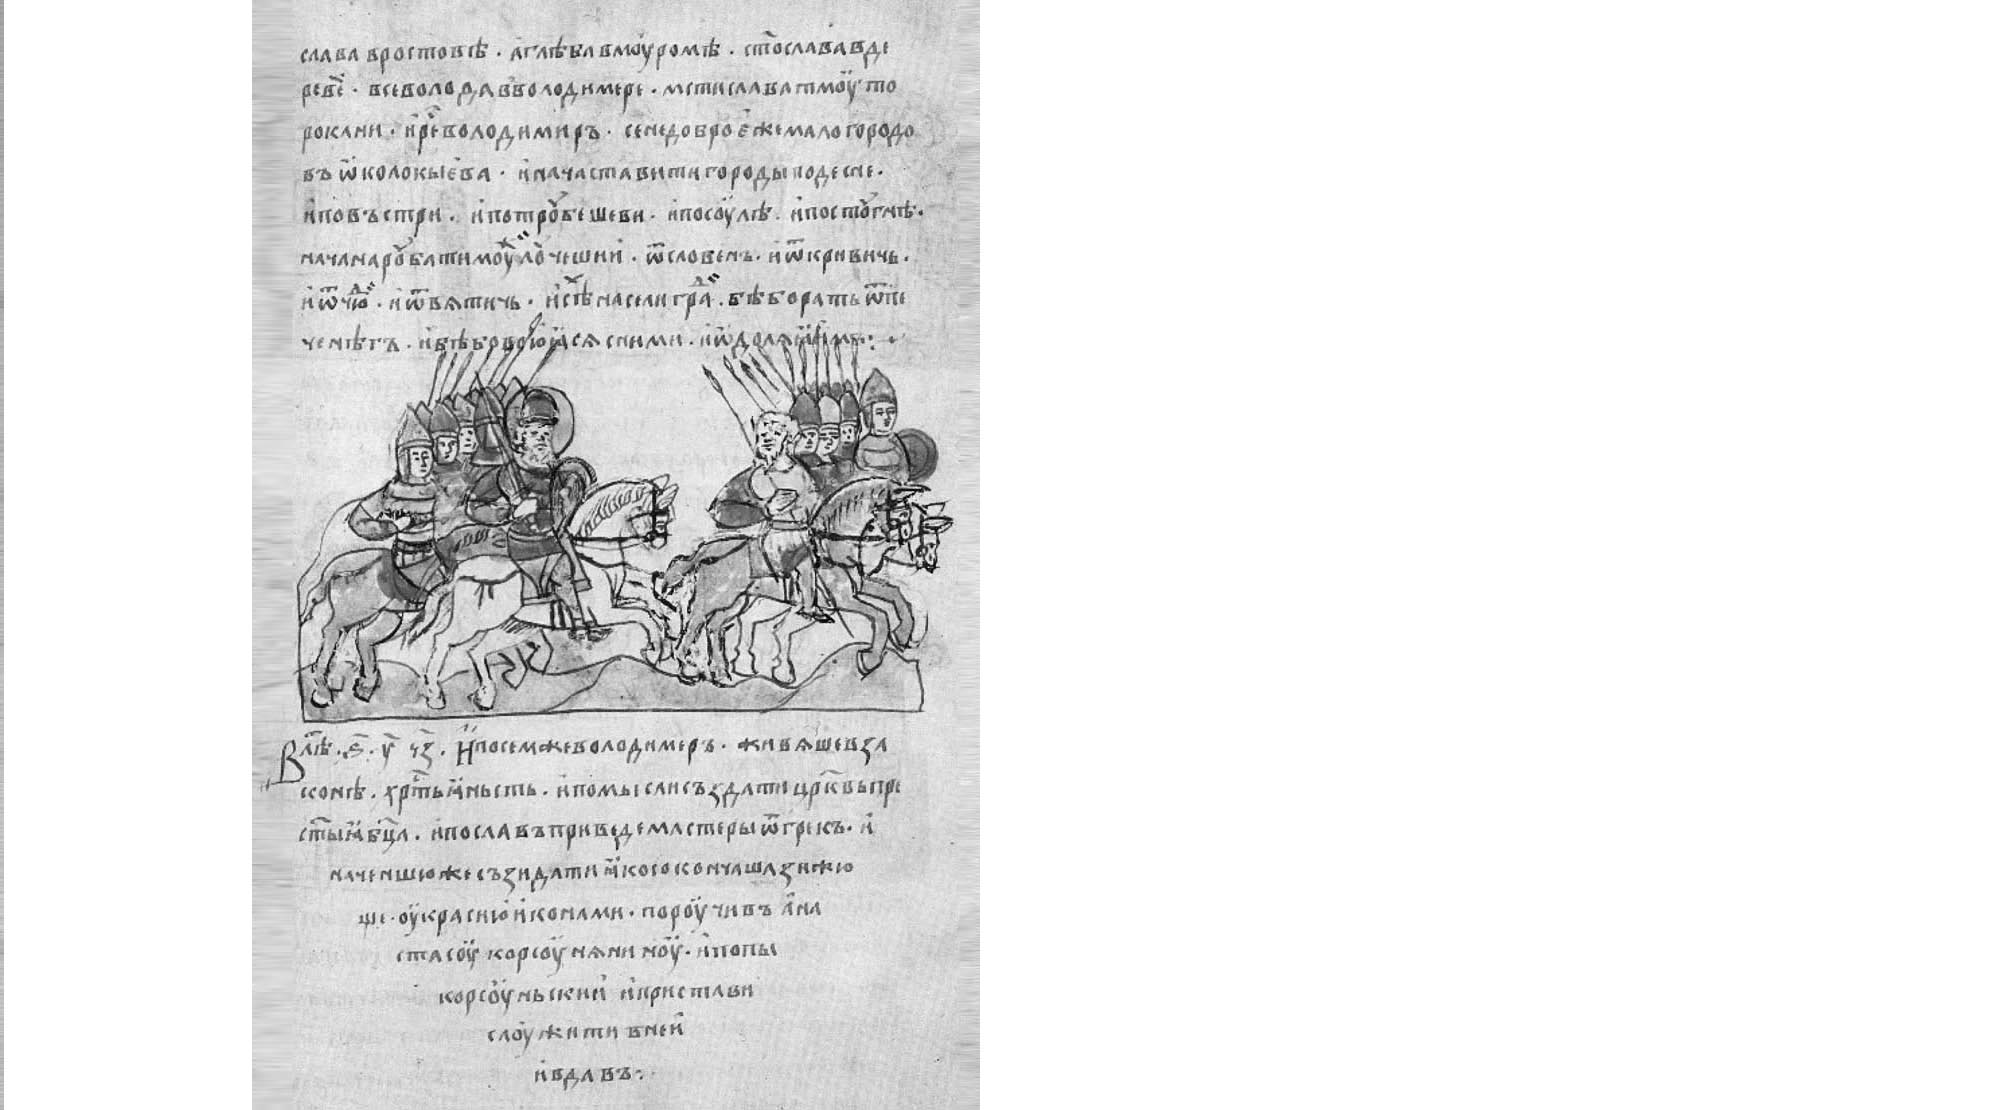 слава вростовѣ · а́глѣба вмоу́ромѣ · ст҃ослава вде
ревѣ · всеволода в володимере · мстислава тмоу то
рокани · и҆ рⷱ҇е володимиръ · се недобро е҆же мало городо
въ ѡ҆коло кыева · и҆ нача ставити городы подесне ·
и҆ по въстри · и҆ потроубешеви · и҆ посоулѣ · и҆ постоугнѣ ·
нача нароубати моуⷤ лоучешии · ѿ словенъ · и҆ ѿ кривичь ·
и҆ ѿ чюⷣ · и҆ ѿ вѧтичь · и҆ сиⷯ насели граⷣ · бѣ бо рать ѿ пе
ченѣгъ · и҆ бѣ бо воюѧсѧ сними · и҆ ѡ҆долѧѧ имъ :·
В лѣⷮ · ҂ѕ҃ · у҃ ч҃з · И҆ посемже володимеръ · живѧше вза
конѣ · хрⷭ҇тьꙗньсть · и҆ помысли създати црк҃вь пре
ст҃ыꙗ бц҃а · и҆ пославъ приведе мастеры ѿ грекъ · и҆
наченшю же съзидати ꙗко сконча зижю
ще · оукраси ю и҆конами · пороучивъ а҆на
стасоу корсоунѧниноу · и҆ попы
корсоуньскии и҆ пристави
слоужити в неи
и҆ вдавъ :·